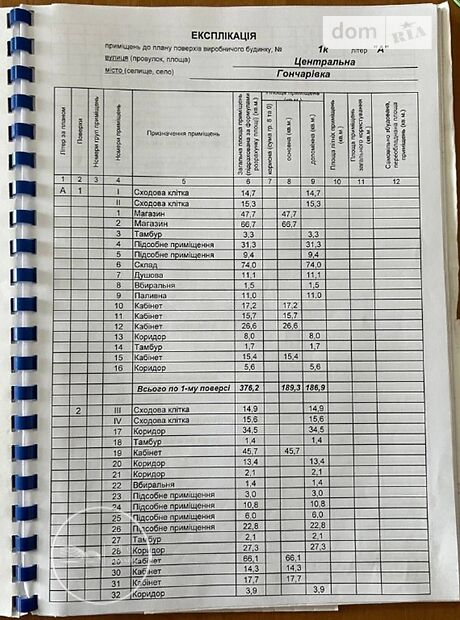 dom RIA
ЕКСПЛІКАЦІЯ
приміщень до плану поверхів виробничого будинку, № 1к літер "А"
вулиця (провулок, площа) Центральна
місто (селище, село) Гончарівка
Літер за планом Поверхи Номери груп приміщень Номери приміщень Призначення приміщень Загальна площа приміщень (підрахована за формулами розрахунку площі) (кв.м.) Площа приміщень корисна (сума гр. 8 та 9) основна (кв.м.) допоміжна (кв.м.) Площа літніх приміщень (кв.м.) Площа приміщень загального користування (кв.м.) Самовільно збудована, переобладнана площа приміщень (кв.м.)
1 2 3 4 5 6 7 8 9 10 11 12
А 1 I Сходова клітка 14,7 14,7
II Сходова клітка 15,3 15,3
1 Магазин 47,7 47,7
2 Магазин 66,7 66,7
3 Тамбур 3,3 3,3
4 Підсобне приміщення 31,3 31,3
5 Підсобне приміщення 9,4 9,4
6 Склад 74,0 74,0
7 Душова 11,1 11,1
8 Вбиральня 1,5 1,5
9 Паливна 11,0 11,0
10 Кабінет 17,2 17,2
11 Кабінет 15,7 15,7
12 Кабінет 26,6 26,6
13 Коридор 8,0 8,0
14 Тамбур 1,7 1,7
15 Кабінет 15,4 15,4
16 Коридор 5,6 5,6
Всього по 1-му поверсі 376,2 189,3 186,9
2 III Сходова клітка 14,9 14,9
IV Сходова клітка 15,6 15,6
17 Коридор 34,5 34,5
18 Тамбур 1,4 1,4
19 Кабінет 45,7 45,7
20 Коридор 13,4 13,4
21 Коридор 2,1 2,1
22 Вбиральня 1,4 1,4
23 Підсобне приміщення 3,0 3,0
24 Підсобне приміщення 10,8 10,8
25 Підсобне приміщення 6,0 6,0
26 Підсобне приміщення 22,8 22,8
27 Тамбур 2,1 2,1
28 Коридор 27,3 27,3
29 Кабінет 66,1 66,1
30 Кабінет 14,3 14,3
31 Кабінет 17,7 17,7
32 Коридор 3,9 3,9